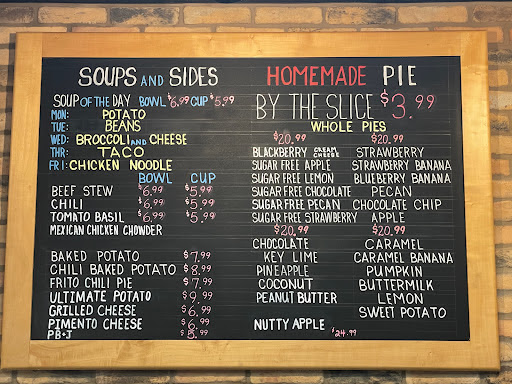 SOUPS AND SIDES
SOUP OF THE DAY BOWL $6.99 CUP $5.99
MON: POTATO
TUE: BEANS
WED: BROCCOLI AND CHEESE
THR: TACO
FRI: CHICKEN NOODLE
BOWL CUP
BEEF STEW $6.99 $5.99
CHILI $6.99 $5.99
TOMATO BASIL $6.99 $5.99
MEXICAN CHICKEN CHOWDER
BAKED POTATO $7.99
CHILI BAKED POTATO $8.99
FRITO CHILI PIE $7.99
ULTIMATE POTATO $9.99
GRILLED CHEESE $6.99
PIMENTO CHEESE $6.99
PB+J $5.99
HOMEMADE PIE
BY THE SLICE $3.99
WHOLE PIES
$20.99 $20.99
BLACKBERRY CREAM CHEESE STRAWBERRY
SUGAR FREE APPLE STRAWBERRY BANANA
SUGAR FREE LEMON BLUEBERRY BANANA
SUGAR FREE CHOCOLATE PECAN
SUGAR FREE PECAN CHOCOLATE CHIP
SUGAR FREE STRAWBERRY APPLE
$20.99 $20.99
CHOCOLATE CARAMEL
KEY LIME CARAMEL BANANA
PINEAPPLE PUMPKIN
COCONUT BUTTERMILK
PEANUT BUTTER LEMON
SWEET POTATO
NUTTY APPLE $24.99